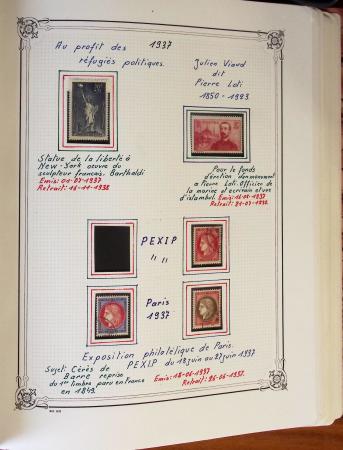 Au profit des
réfugiés politiques.
1937
Julien Viaud
dit
Pierre Loti
1850-1923
Statue de la liberté à
New-York oeuvre du
sculpteur français. Bartholdi
Emis:
Retrait:
Pour le fonds
d'érection d'un monument
à Pierre Loti. Officier de
la marine et écrivain et vue
d'istambul.
Retrait:
PEXIP
" "
Paris
1937
Exposition philatélique de Paris.
PEXIP du 18 juin au 27 juin 1937
Sujet: Cérès de
Barre reprise
du 1er timbre paru en France
en 1849.
Emis: 18-06-1937
Retrait: